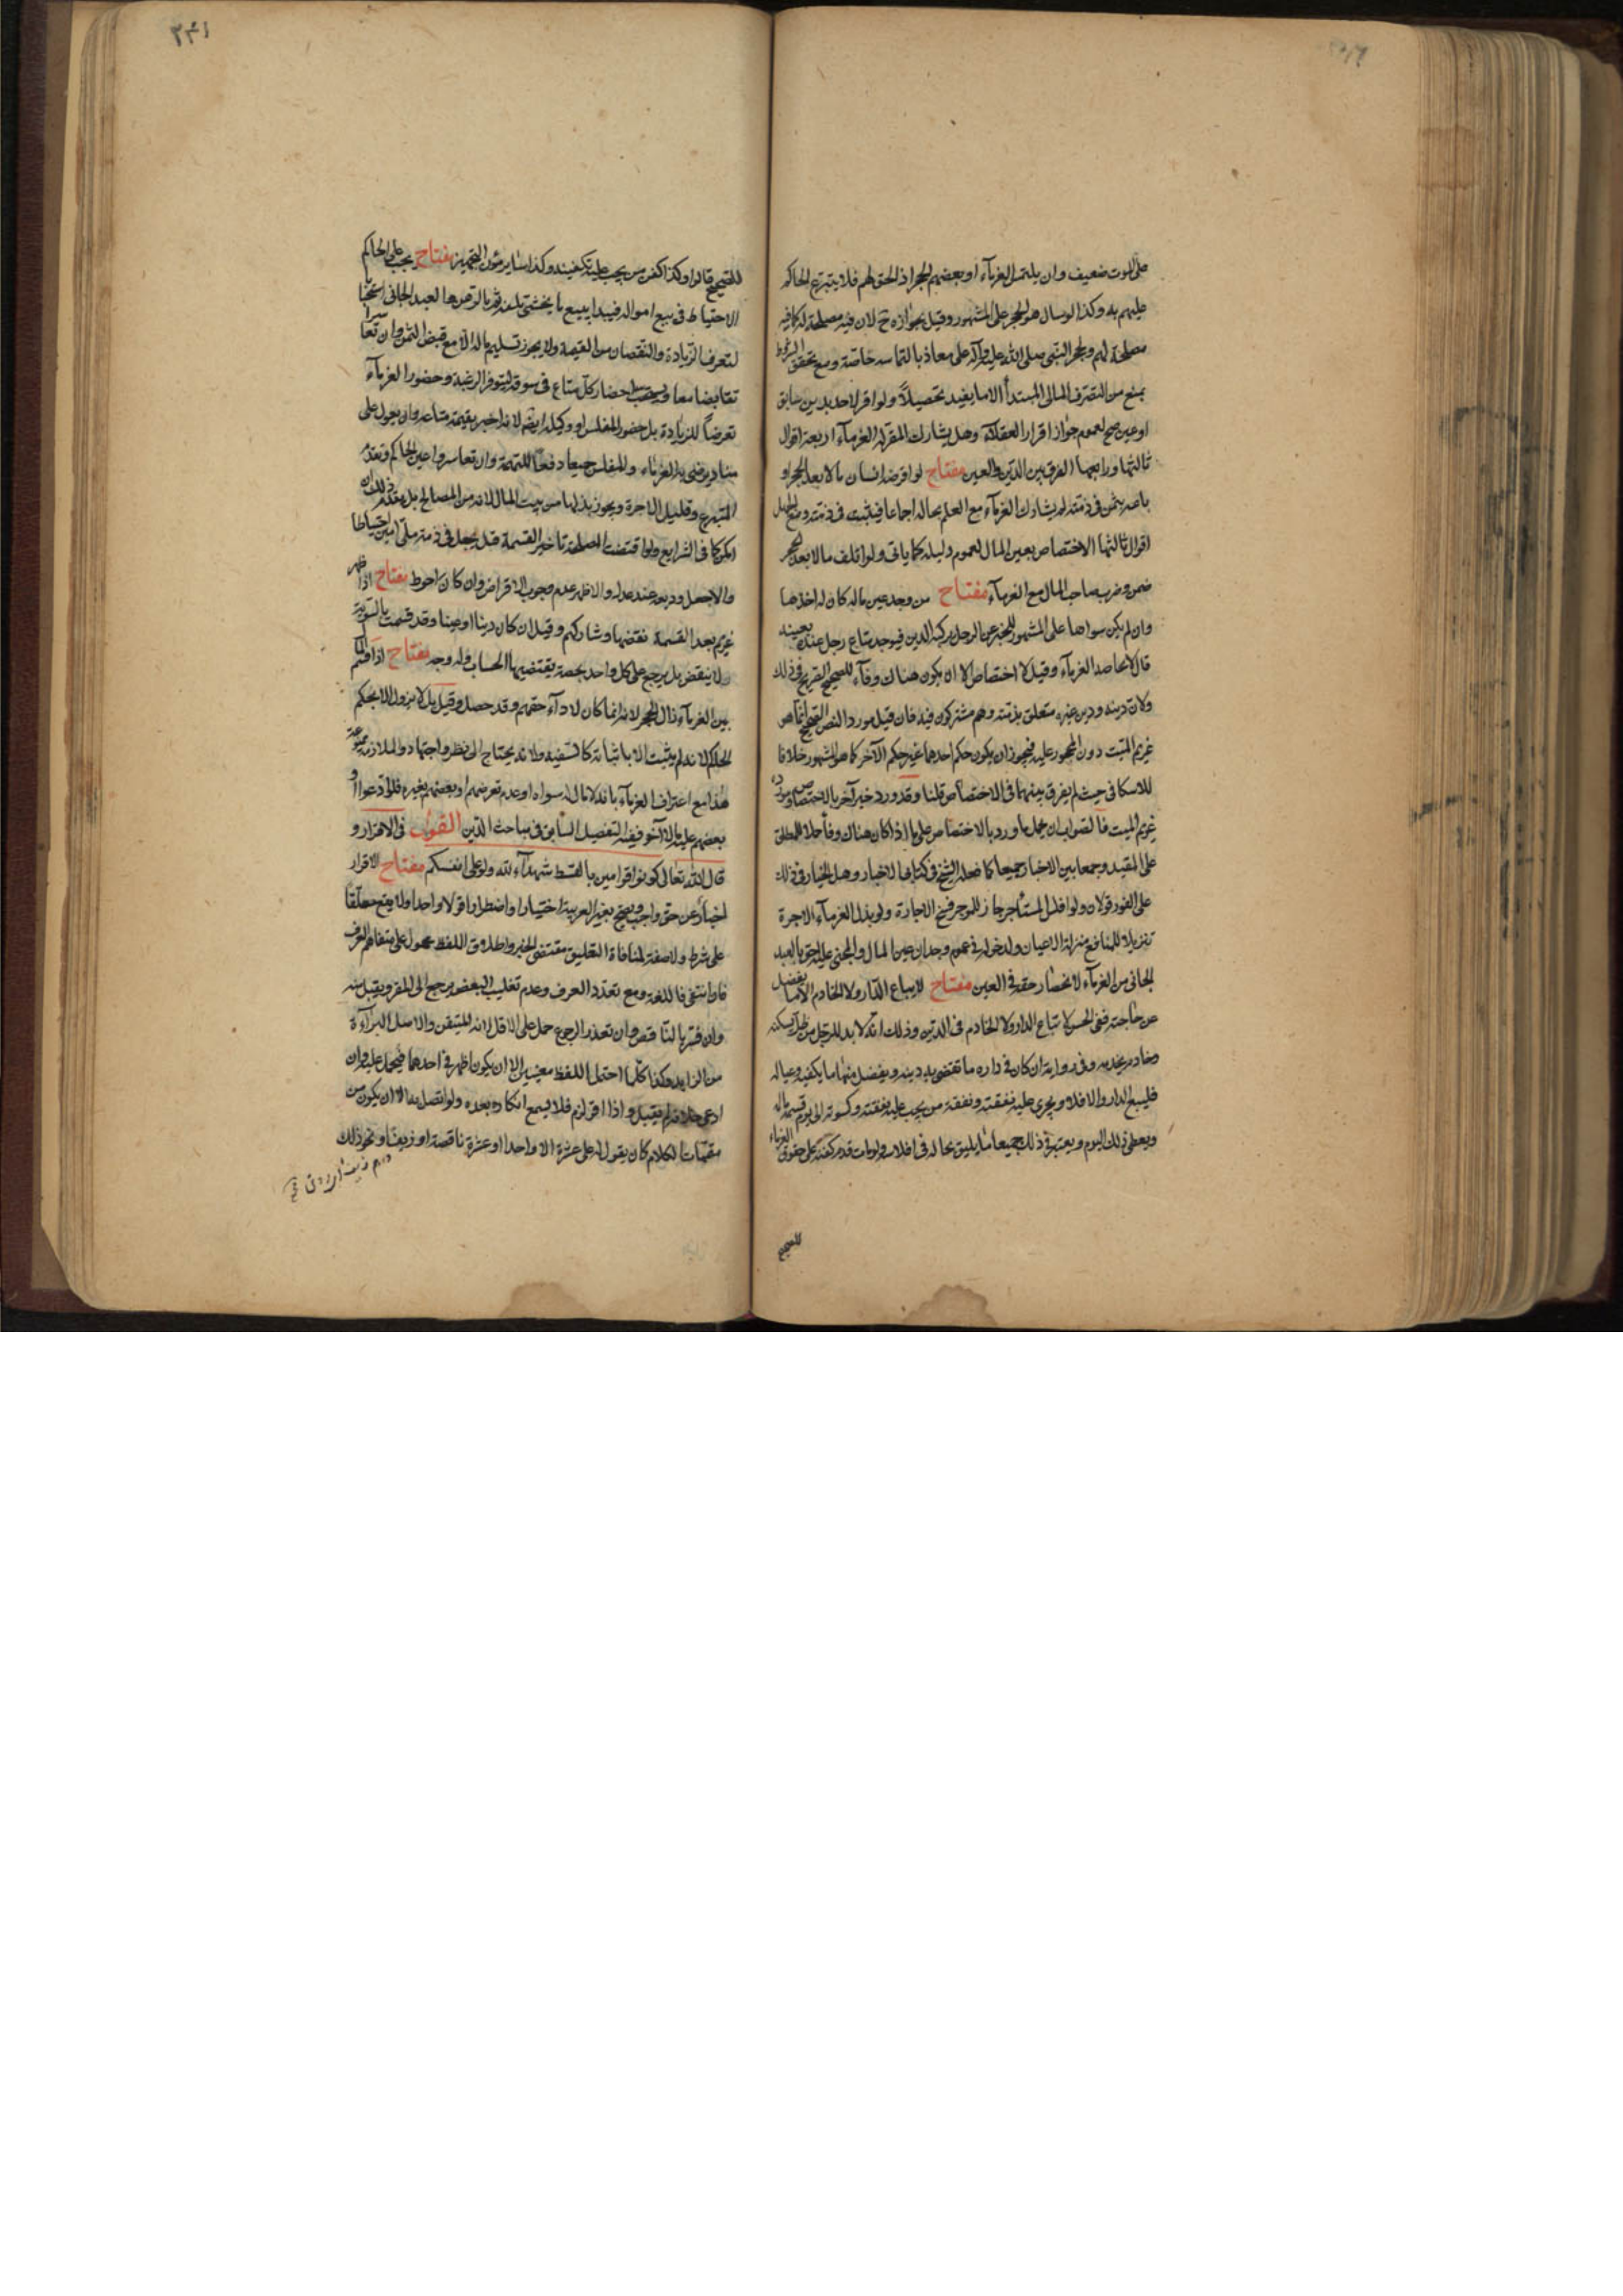 على الموت ضعيف وان يلتمس الغرمآء او بعضهم الحجر اذ الحق لهم فلا يتبرع الحاكم
عليهم به وكذا لو سال هو الحجر على المشهور وقيل بجوازه ح لان فيه مصلحة له كما فيه
مصلحة لهم ولحجر النبي صلى الله عليه وآله على معاذ بالتماسه خاصة ومع تحقق الشروط
يمنع من التصرف المالى المبتدأ الا ما يفيد تحصيلاً ولو اقر لاحد بدين سابق
او عين صح لعموم جواز اقرار العقلاء وهل يشارك المقر له الغرمآء اربعة اقوال
ثالثها ورابعها الفرق بين الدين والعين مفتاح لو اقرضه انسان مالا بعد الحجر او
باعه بثمن في ذمته لم يشارك الغرمآء مع العلم بحاله اجماعا فيثبت في ذمته ومع الجهل
اقوال ثالثها الاختصاص بعين المال لعموم دليله كما ياتى ولو اتلف مالا بعد الحجر
ضمن وضرب صاحب المال مع الغرمآء مفتاح من وجد عين ماله كان له اخذها
وان لم يكن سواها على المشهور للخبر عن الرجل يركبه الدين فيوجد متاع رجل عنده بعينه
قال لا يحاصه الغرمآء وقيل لا اختصاص الا ان يكون هناك وفآء للصحيح الصريح في ذلك
ولان دينه ودين غيره متعلق بذمته وهم مشتركون فيه فان قيل مورد النص الصحيح انما هو
غريم الميت دون المحجور عليه فيجوز ان يكون حكم احدهما غير حكم الآخر كما هو المشهور خلافا
للاسكافي حيث لم يفرق بينهما في الاختصاص قلنا وقد ورد خبر آخر بالاختصاص ومورده
غريم الميت فالصواب ان يحمل ما ورد بالاختصاص على ما اذا كان هناك وفآء حملا للمطلق
على المقيد وجمعا بين الاخبار جميعا كما فعله الشيخ في كتابى الاخبار وهل الخيار في ذلك
على الفور قولان ولو افلس المستأجر جاز للموجر فسخ الاجارة ولو بذل الغرمآء الاجرة
تنزيلا للمنافع منزلة الاعيان ولدخوله في عموم وجدان عين المال والمجنى عليه احق بالعبد
الجانى من الغرمآء لانحصار حقه في العين مفتاح لا يباع الدار ولا الخادم الا ما يفضل
عن حاجته ففى الحسن لا تباع الدار ولا الخادم في الدين وذلك انه لا بد للرجل من ظل يسكنه
وخادم يخدمه وفى رواية ان كان في داره ما تقتضى به دينه ويفضل منها ما يكفيه وعياله
فليبع الدار والا فلا ويجرى عليه نفقته ونفقة من يجب عليه نفقته وكسوته الى يوم قسمة ماله
ويعطى ذلك اليوم ويعتبر في ذلك جميعا ما يليق بحاله في افلاسه ولو مات قدم كفنه على حقوق الغرماء
للصحيح
٢٤١
للصحيح قالوا وكذا كفن من يجب عليه تكفينه وكذا ساير مؤن التجهيز مفتاح يجب على الحاكم
الاحتياط في بيع امواله فيبدا ببيع ما يخشى تلفه ثم بالرهن ثم بالعبد الجانى استحبابا
لتعرف الزيادة والنقصان من القيمة ولا يجوز تسليم ماله الا مع قبض الثمن وان تعاسرا
تقابضا معا ويستحب احضار كل متاع في سوقه ليتوفر الرغبة وحضور الغرمآء
تعرضاً للزيادة بل حضور المفلس او وكيله ايضا لانه اخبر بقيمة متاعه وان يعول على
مناد يرضى به الغرماء والمفلس جميعا دفعا للتهمة وان تعاسروا عين الحاكم ويقدم
المتبرع وقليل الاجرة ويجوز بذلها من بيت المال لانه من المصالح بل يقدم ذلك ان
امكن كما في الشرايع ولو اقتضت المصلحة تاخير القسمة قيل يجعل في ذمة ملى امين احتياطا
والا جعل وديعة عند عدل والاظهر عدم وجوب الاقراض وان كان احوط مفتاح اذا ظهر
غريم بعد القسمة نقضها وشاركهم وقيل ان كان دينا او عينا وقد قسمت بالتسوية
لا ينقض بل يرجع على كل واحد بحصة يقتضيها الحساب وله وجه مفتاح اذا قسم المال
بين الغرمآء زال الحجر لانه انما كان لادآء حقهم وقد حصل وقيل بل لا يزول الا بحكم
الحاكم لانه لم يثبت الا باثباته كالسفيه ولانه يحتاج الى نظر واجتهاد والملازمة ممنوعة
هذا مع اعتراف الغرمآء بانه لا مال له سواه او عدم تعرضهم او بعضهم بغيره فلو ادعوا او
بعضهم عليه مالا آخر ففيه التفصيل السابق في مباحث الدين القول في الاقرار و
قال الله تعالى كونوا قوامين بالقسط شهدآء لله ولو على انفسكم مفتاح الاقرار
اخبار عن حق واجب ويصح بغير العربية اختيارا واضطرارا قولا واحدا ولا يصح معلقا
على شرط ولا صفة لمنافاة التعليق مقتضى الخبر واطلاق اللفظ محمول على متفاهم العرف
فان انتفى فاللغة ومع تعدد العرف وعدم تغليب البعض يرجع الى المقر ويقبل منه
وان فسر بالناقص وان تعذر الرجوع حمل على الاقل لانه المتيقن والاصل البرآءة
من الزايد وكذا كلما احتمل اللفظ معنيين الا ان يكون اظهر في احدهما فيحمل عليه وان
ادعى خلافه لم يقبل واذا اقر لزم فلا يسمع انكاره بعده ولو اتصل به الا ان يكون من
متممات الكلام كان يقول له على عشرة الا واحدا او عشرة ناقصة او زيفا ونحو ذلك